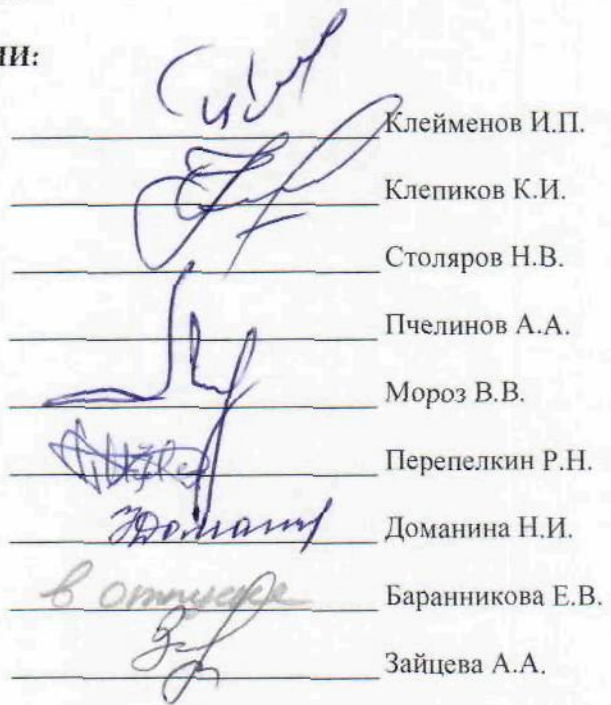 ИИ:
Клейменов И.П.
Клепиков К.И.
Столяров Н.В.
Пчелинов А.А.
Мороз В.В.
Перепелкин Р.Н.
Доманина Н.И.
в отпуске Баранникова Е.В.
Зайцева А.А.